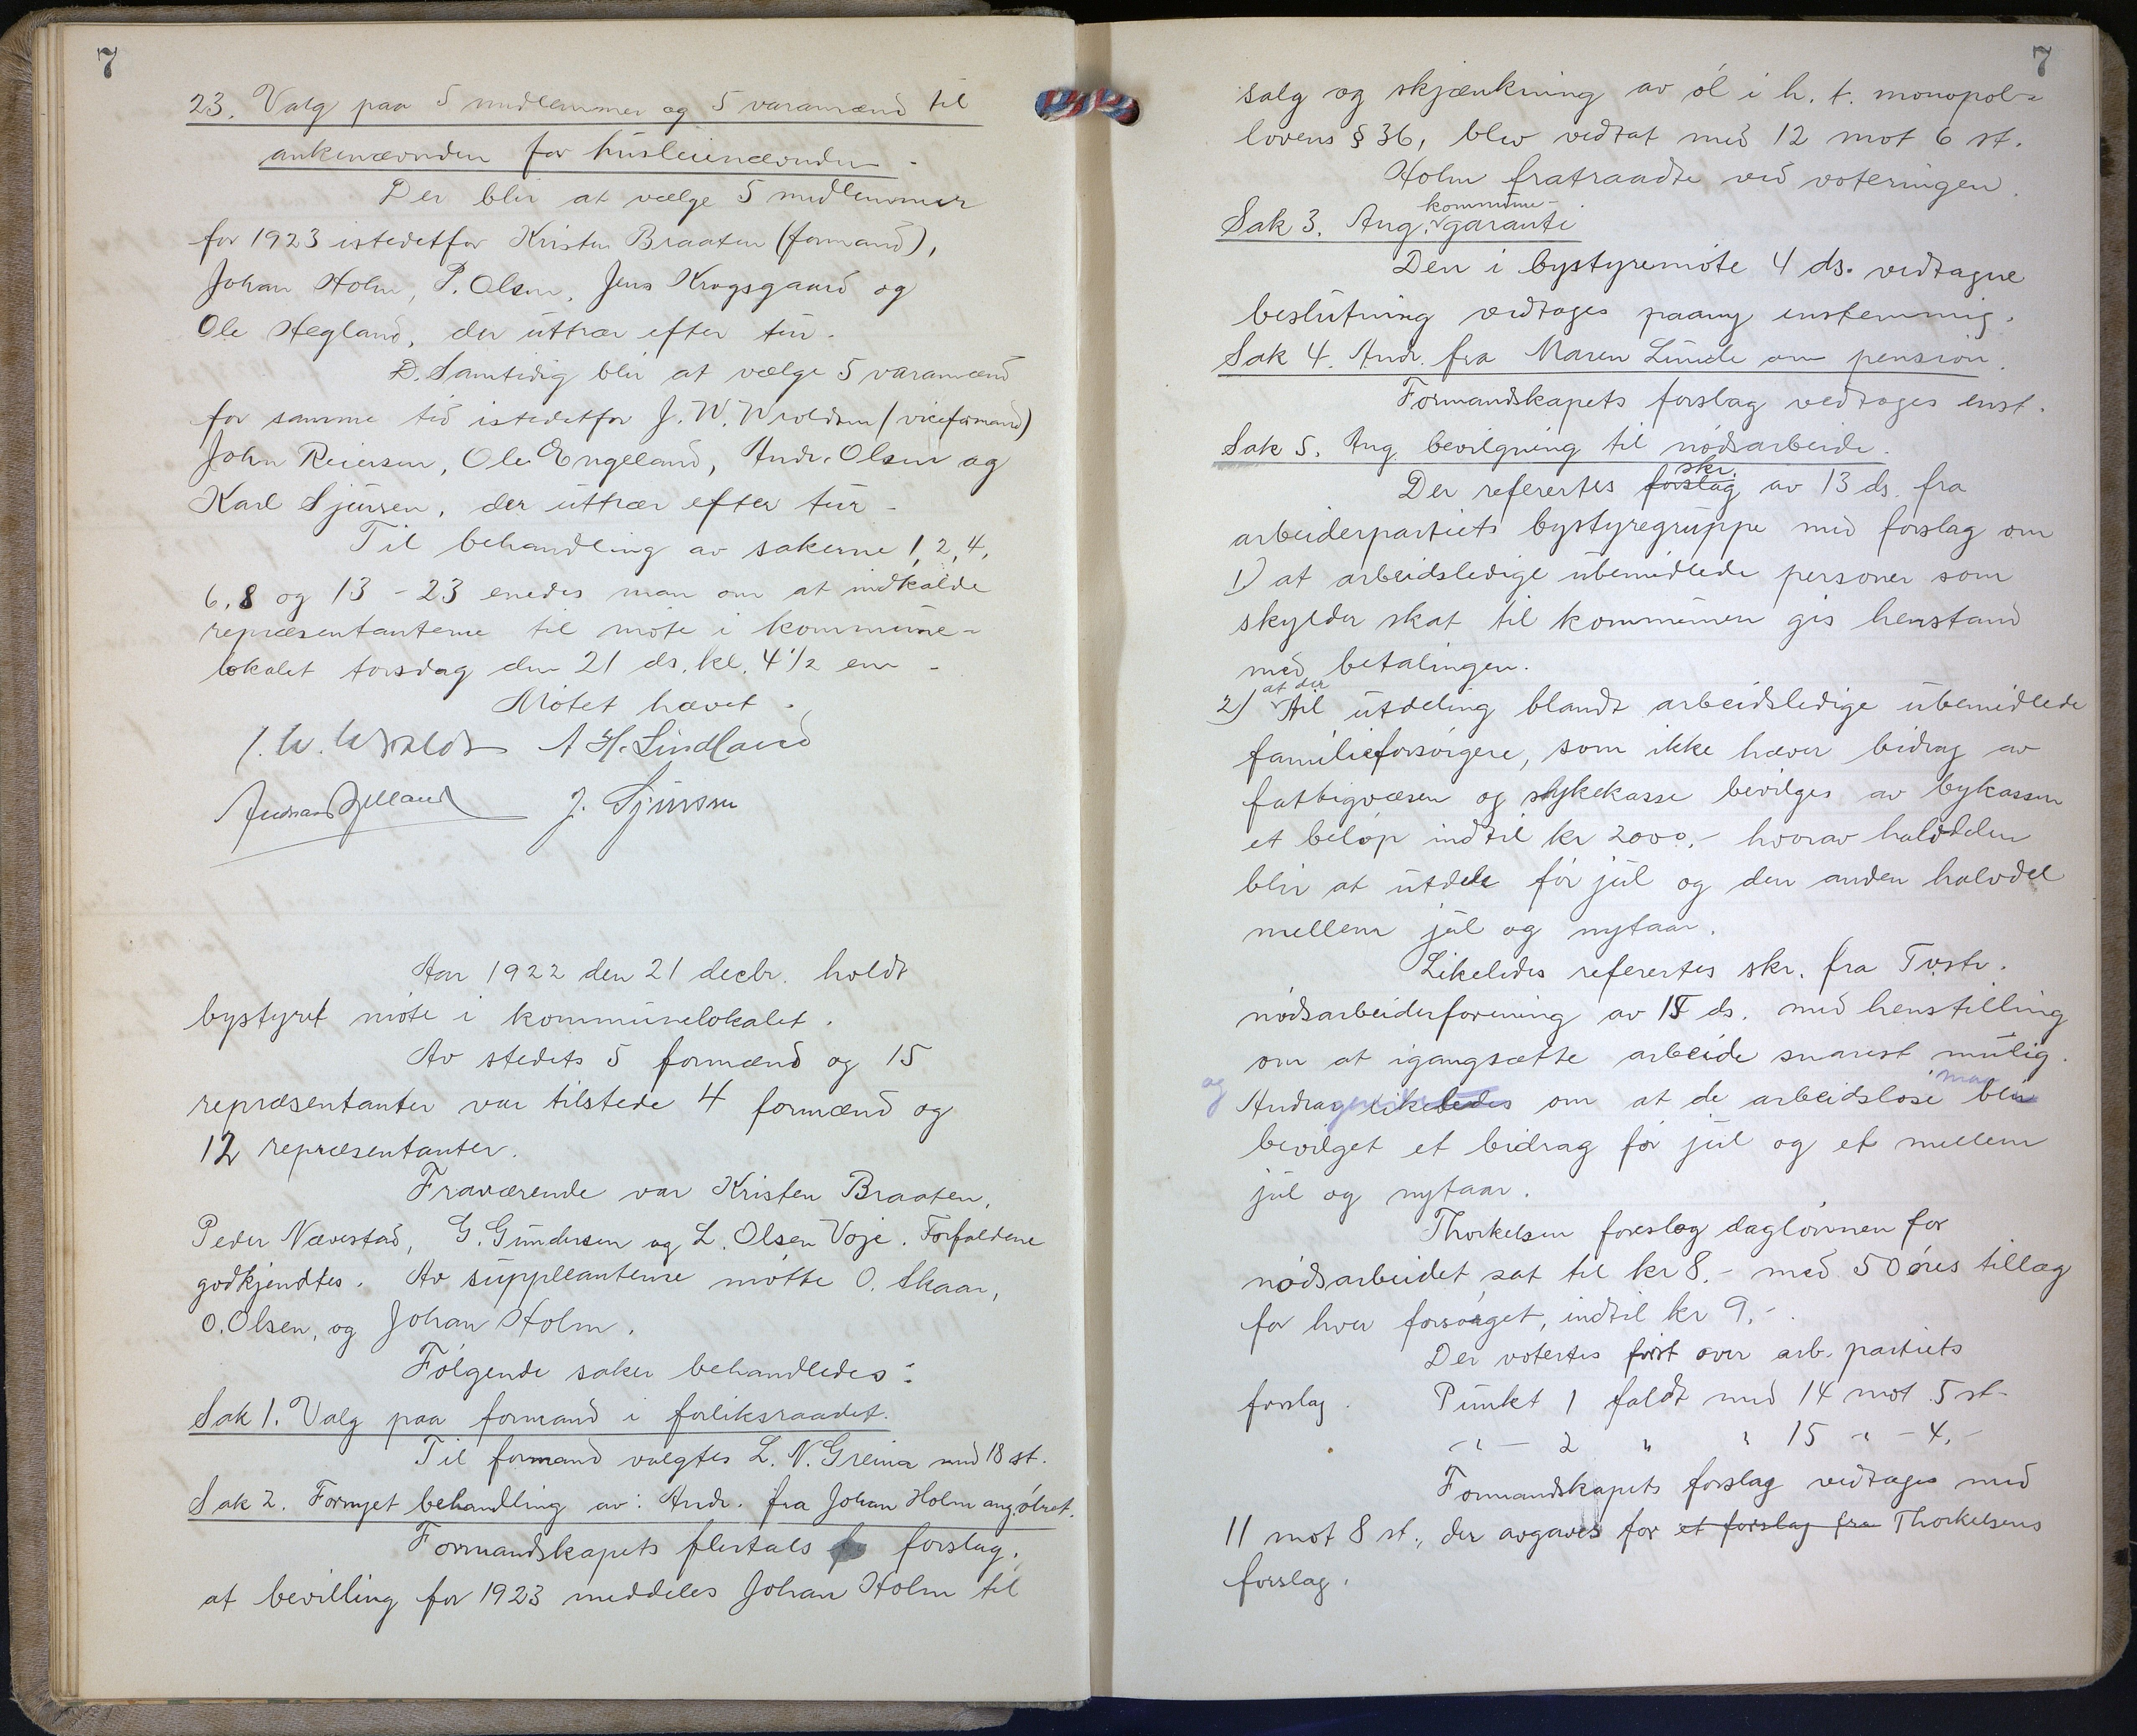 7
23. Valg paa 5 medlemmer og 5 varamænd til
ankenævnden for husleienævnden.
Der blir at vælge 5 medlemmer
for 1923 istedetfor Kristen Braaten (formand),
Johan Holm, P. Olsen, Jens Krogsgaard og
Ole Hegland, der uttrær efter tur.
Samtidig blir at vælge 5 varamænd
for samme tid istedetfor J. W. Wroldsen (viceformand)
John Reiersen, Ole Engeland, Andr. Olsen og
Karl Sjursen, der uttrær efter tur.
Til behandling av sakerne 1, 2, 4,
6, 8 og 13 - 23 enedes man om at indkalde
repræsentanterne til møte i kommune-
lokalet torsdag den 21 ds. kl. 4 1/2 em.
Møtet hævet.
J. W. Wrolds A H. Lindland
J. Sjursen
Aar 1922 den 21 decbr. holdt
bystyret møte i kommunelokalet.
Av stedets 5 formænd og 15
repræsentanter var tilstede 4 formænd og
12 repræsentanter.
Fraværende var Kristen Braaten,
Peder Nævestad, G. Gundersen og L. Olsen Voje. Forfaldene
godkjendtes. Av suppleanterne møtte O. Skaar,
O. Olsen, og Johan Holm.
Følgende saker behandledes:
Sak 1. Valg paa formand i forliksraadet.
Til formand valgtes L. N. Greina med 18 st.
Sak 2. Fornyet behandling av: Andr. fra Johan Holm ang. ølret.
Formandskapets flertals forslag,
at bevilling for 1923 meddeles Johan Holm til
7
salg og skjænkning av øl i h. t. monopol-
lovens § 36, blev vedtat med 12 mot 6 st.
Holm fratraadte ved voteringen.
Sak 3. Ang. kommune-garanti
Den i bystyremøte 4 ds. vedtagne
beslutning vedtages paany enstemmig.
Sak 4. Andr. fra Maren Lunde om pension.
Formandskapets forslag vedtages enst.
Sak 5. Ang. bevilgning til nødsarbeide.
Der referertes forslag skr. av 13 ds. fra
arbeiderpartiets bystyregruppe med forslag om
1) at arbeidsledige ubemidlede personer som
skylder skat til kommunen gis henstand
med betalingen.
2) at der til utdeling blandt arbeidsledige ubemidlede
familieforsørgere, som ikke hæver bidrag av
fattigvæsen og sykekasse bevilges av bykassen
et beløp indtil kr 2000.- hvorav halvdelen
blir at utdele før jul og den anden halvdel
mellem jul og nytaar.
Likeledes referertes skr. fra Tvestr.
nødsarbeiderforening av 15 ds. med henstilling
om at igangsætte arbeide snarest mulig.
og Andrag likeledes om at de arbeidsløse maa blir
bevilget et bidrag før jul og et mellem
jul og nytaar.
Thorkelsen foreslog daglønnen for
nødsarbeidet sat til kr 8.- med 50 øres tillæg
for hver forsørget, indtil kr 9.-
Der votertes først over arb. partiets
forslag. Punkt 1 faldt med 14 mot 5 st-
-"- 2 " " 15 " - 4.-
Formandskapets forslag vedtages med
11 mot 8 st., der avgaves for et forslag fra Thorkelsens
forslag.